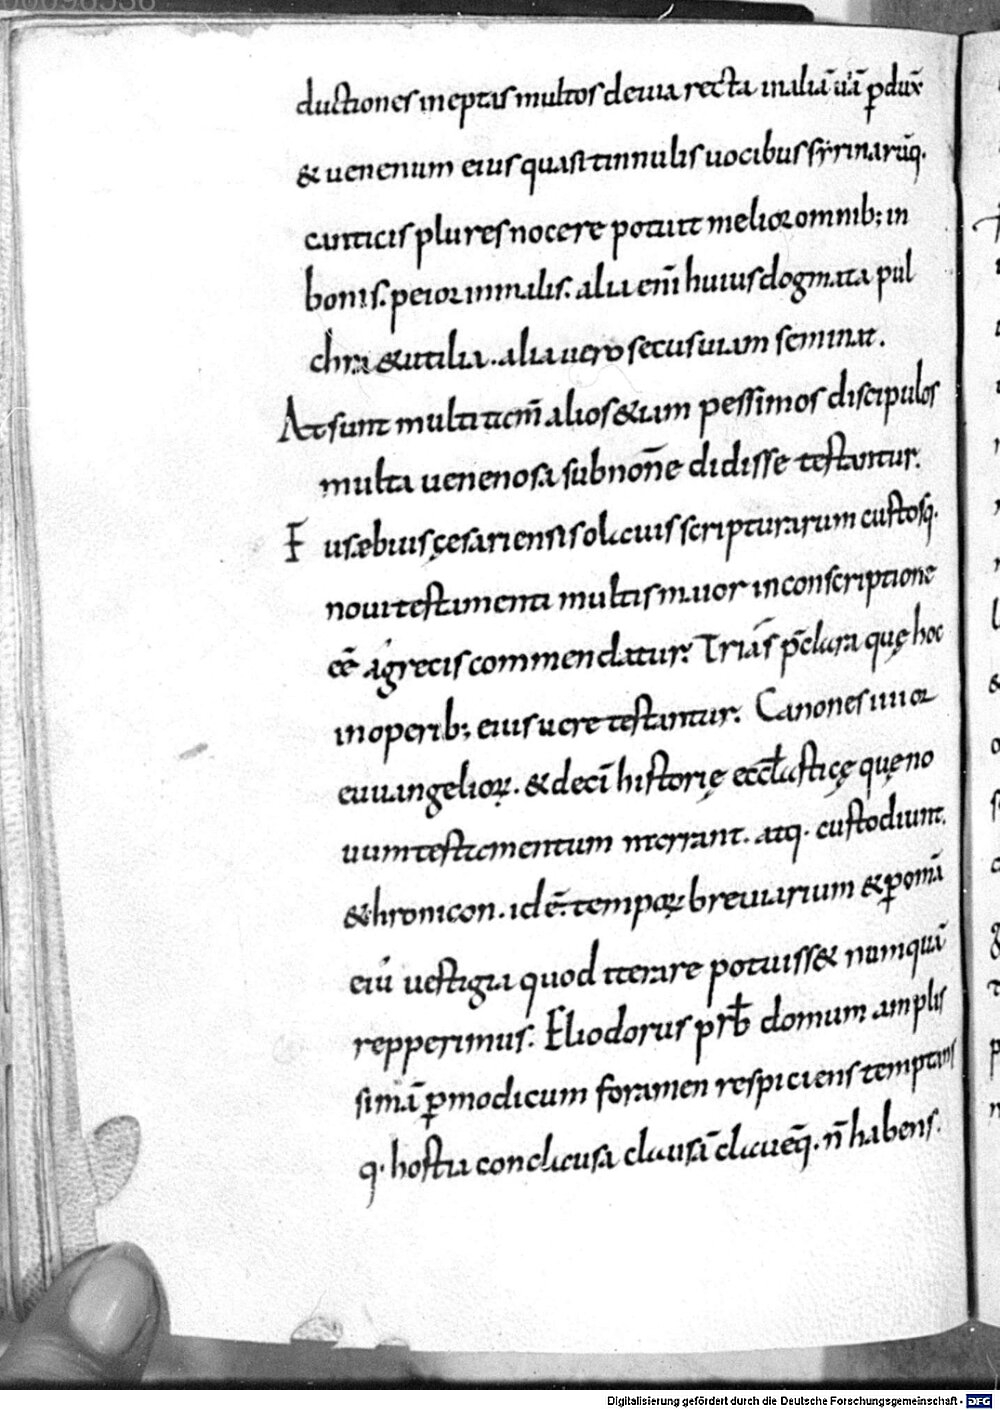 ductiones ineptas multos deuia recta in aliā uiā ꝑdux̄
& uenenum eius quasi tinnulis uocibus syrinarūq.
canticis plures nocere potuit melior omnib; in
bonis. peior in malis. alia eni̅ huius dogmata pul
chra & utilia. alia uero secus uiam seminat.
At sunt multi tam̅ alios &iam pessimos discipulos
multa uenenosa sub non̅e didisse testantur.
Eusæbius çesariensis
scripturarum custosq.
noui testamenti multis maior in conscriptione
ēe a grecis commendatur. Tria s̄ p̄clara quę hoc
in operib; eius uere testantur. Canones iiiior
euuangelioꝝ. & deci̅ historię eccl̅asticę quę no
uum testamentum narrant. atq. custodiunt.
& hronicon. id ē. tempoꝝ breuiarium & ꝑ omā
eiū uestigia quod iterare potuiss& numquā
repperimus. Eliodorus prb̅ domum amplis
simā ꝑ modicum foramen respiciens temptans
q. hostia conclausa clausā clauēq. n̄ habens.
Digitalisierung gefördert durch die Deutsche Forschungsgemeinschaft - DFG